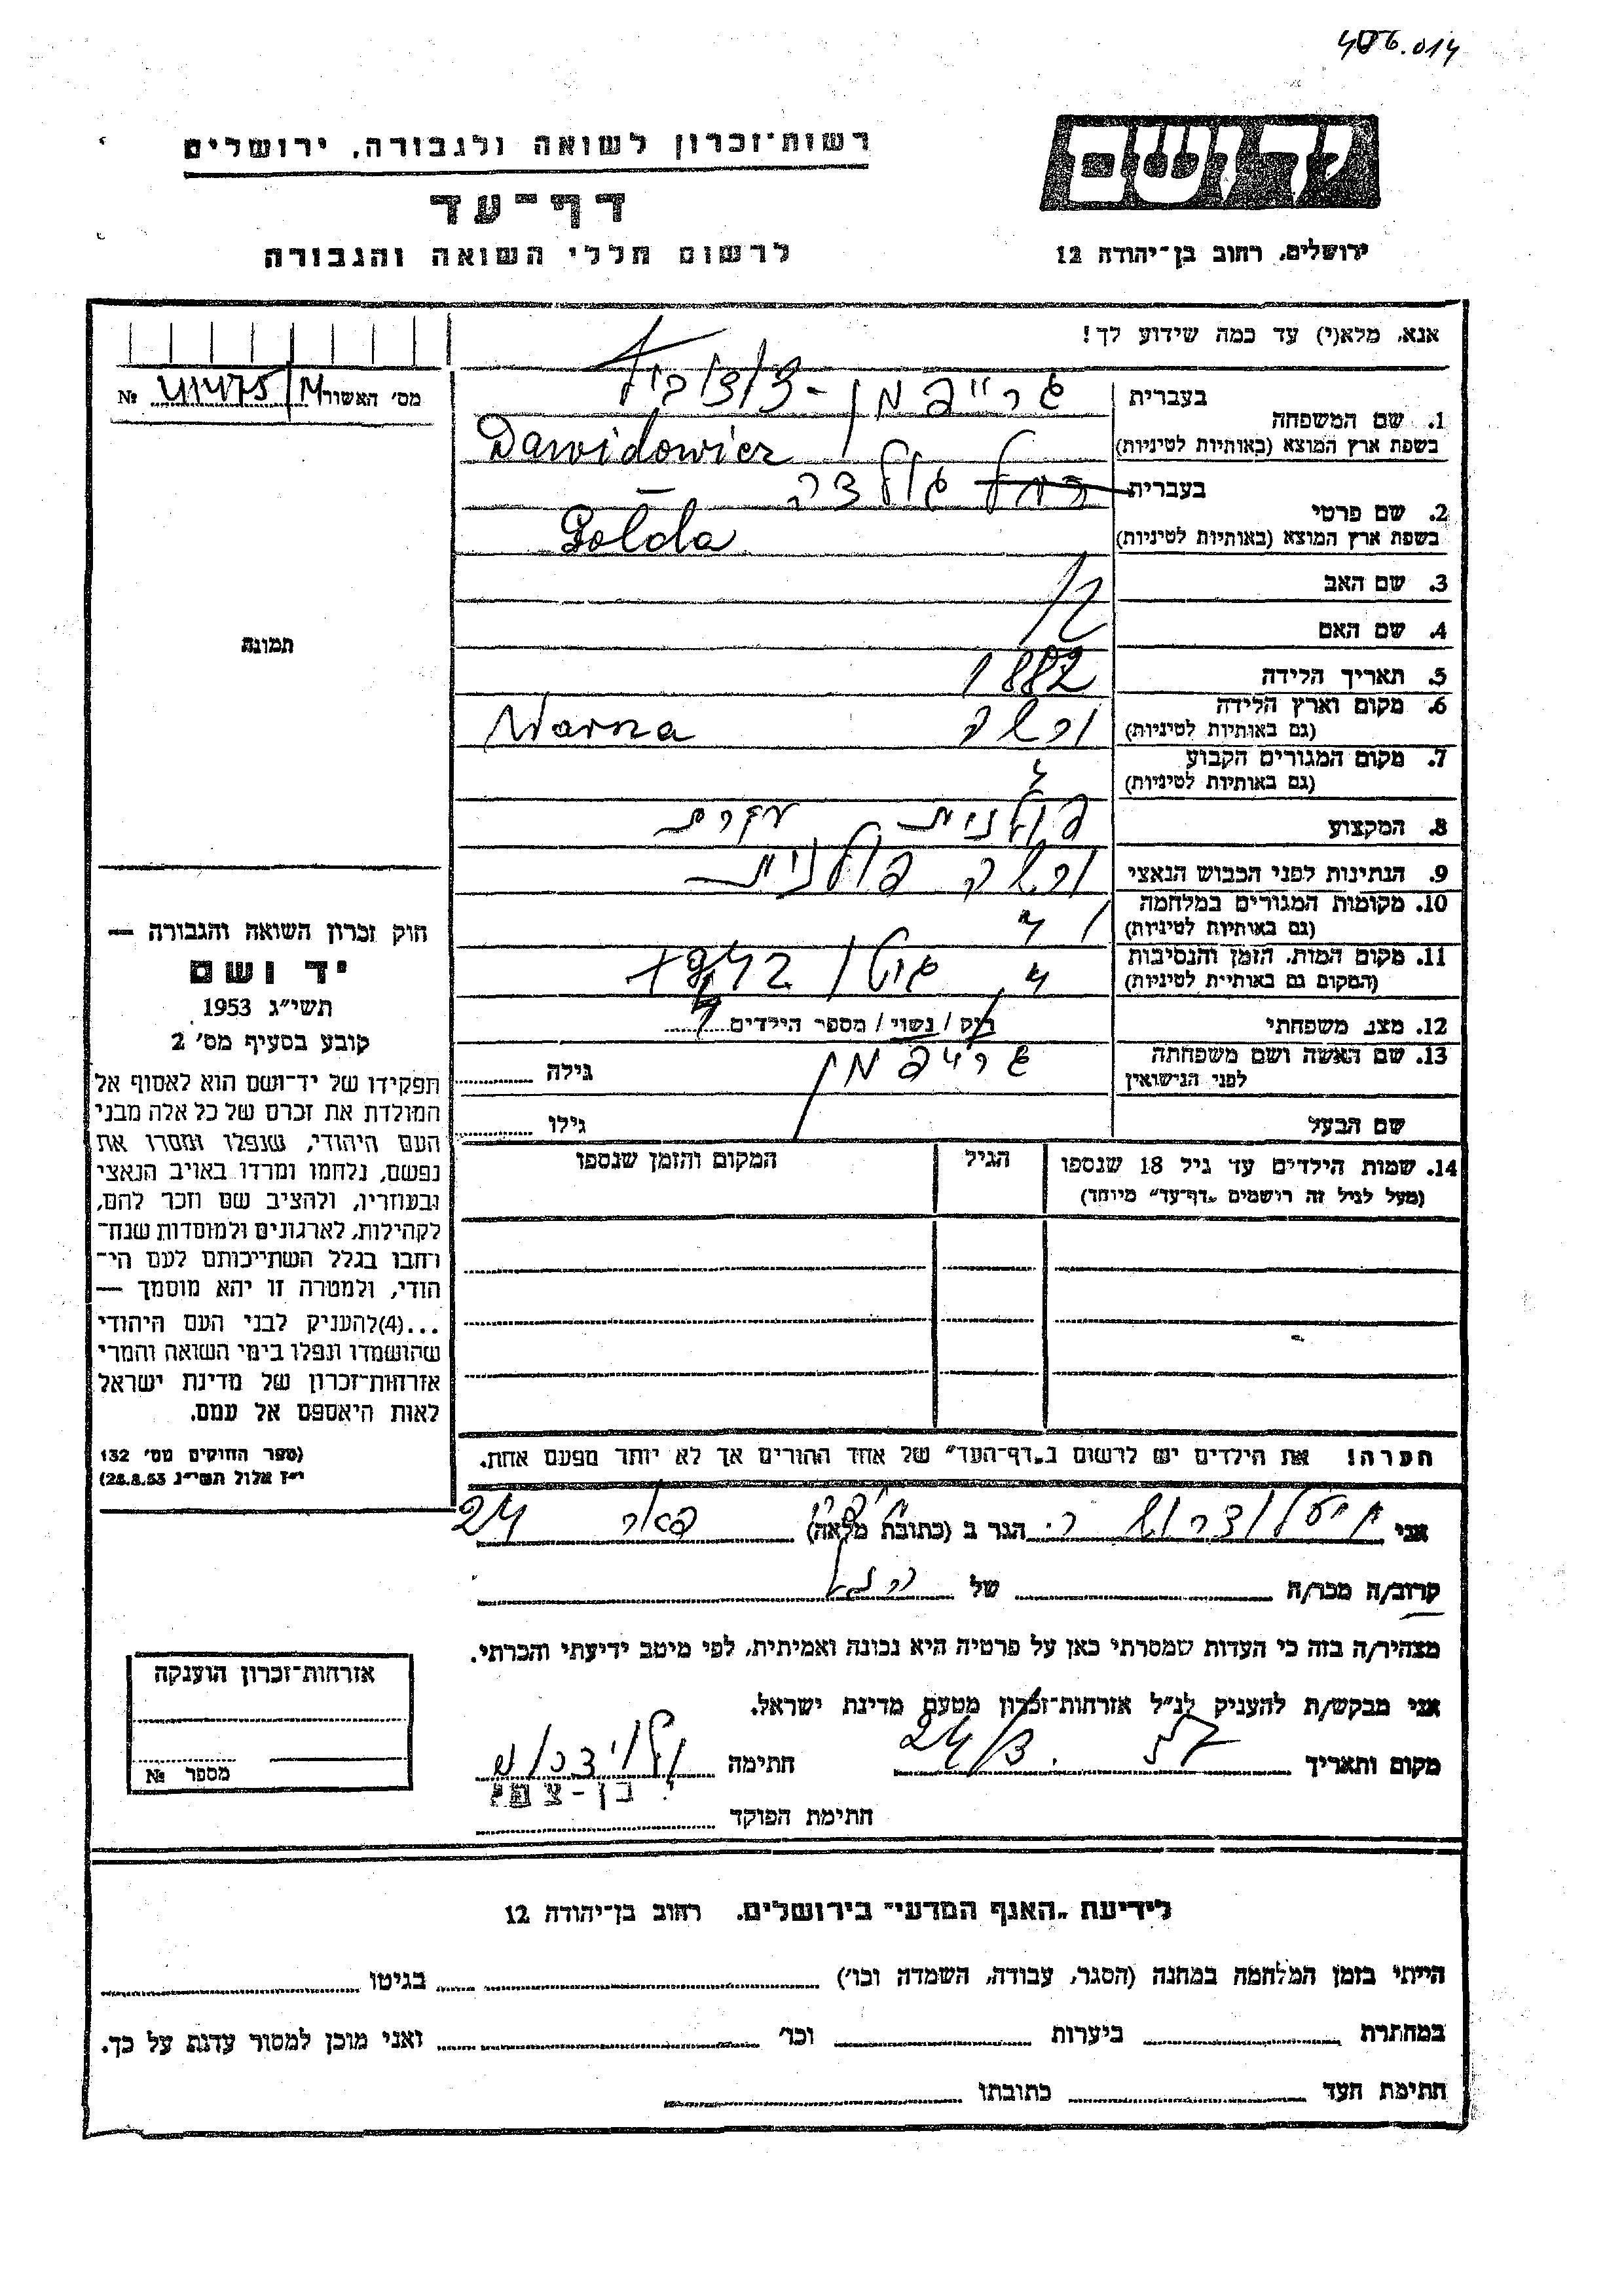 406.014
רשות־זכרון לשואה ולגבורה, ירושלים
דף־עד
לרשום חללי השואה והגבורה
ידושם
ירושלים, רחוב בן־יהודה 12
אנא, מלא(י) עד כמה שידוע לך!
מס׳ האשור №
1. שם המשפחה
בעברית
בשפת ארץ המוצא (באותיות לטיניות) Dawidowicz
2. שם פרטי
בעברית גולדה
בשפת ארץ המוצא (באותיות לטיניות) Golda
3. שם האב
4. שם האם
5. תאריך הלידה 1882
6. מקום וארץ הלידה
(גם באותיות לטיניות) ורשה Warsza
7. מקום המגורים הקבוע
(גם באותיות לטיניות)
8. המקצוע עקרת
9. הנתינות לפני הכבוש הנאצי פולנית
10. מקומות המגורים במלחמה
(גם באותיות לטיניות)
11. מקום המות, הזמן והנסיבות
(המקום גם באותיות לטיניות) גיטו 1942
12. מצב משפחתי רוק / נשוי / מספר הילדים
13. שם האשה ושם משפחתה
לפני הנישואין גרייפמן גילה
שם הבעל גילו
14. שמות הילדים עד גיל 18 שנספו
(מעל לגיל זה רושמים „דף־עד״ מיוחד)
הגיל
המקום והזמן שנספו
הערה! את הילדים יש לרשום ב„דף־העד״ של אחד ההורים אך לא יותר מפעם אחת.
תמונה
חוק זכרון השואה והגבורה —
יד ושם
תשי״ג 1953
קובע בסעיף מס׳ 2
תפקידו של יד־ושם הוא לאסוף אל
המולדת את זכרם של כל אלה מבני
העם היהודי, שנפלו ומסרו את
נפשם, נלחמו ומרדו באויב הנאצי
ובעוזריו, ולהציב שם וזכר להם,
לקהילות, לארגונים ולמוסדות שנח־
רבו בגלל השתייכותם לעם הי־
הודי, ולמטרה זו יהא מוסמך —
...(4)להעניק לבני העם היהודי
שהושמדו ונפלו בימי השואה והמרי
אזרחות־זכרון של מדינת ישראל
לאות היאספם אל עמם.
(ספר החוקים מס׳ 132
י״ז אלול תשי״ג 28.8.53)
אני הגר ב (כתובת מלאה) 24
קרוב/ה מכר/ה של
מצהיר/ה בזה כי העדות שמסרתי כאן על פרטיה היא נכונה ואמיתית, לפי מיטב ידיעתי והכרתי.
אני מבקש/ת להעניק לנ״ל אזרחות־זכרון מטעם מדינת ישראל.
מקום ותאריך 24/3. 57 חתימה
בן-צבי
חתימת הפוקד
אזרחות־זכרון הוענקה
מספר №
לידיעת „האגף המדעי״ בירושלים, רחוב בן־יהודה 12
הייתי בזמן המלחמה במחנה (הסגר, עבודה, השמדה וכו׳) בגיטו
במחתרת ביערות וכו׳ ואני מוכן למסור עדות על כך.
חתימת העד כתובתו